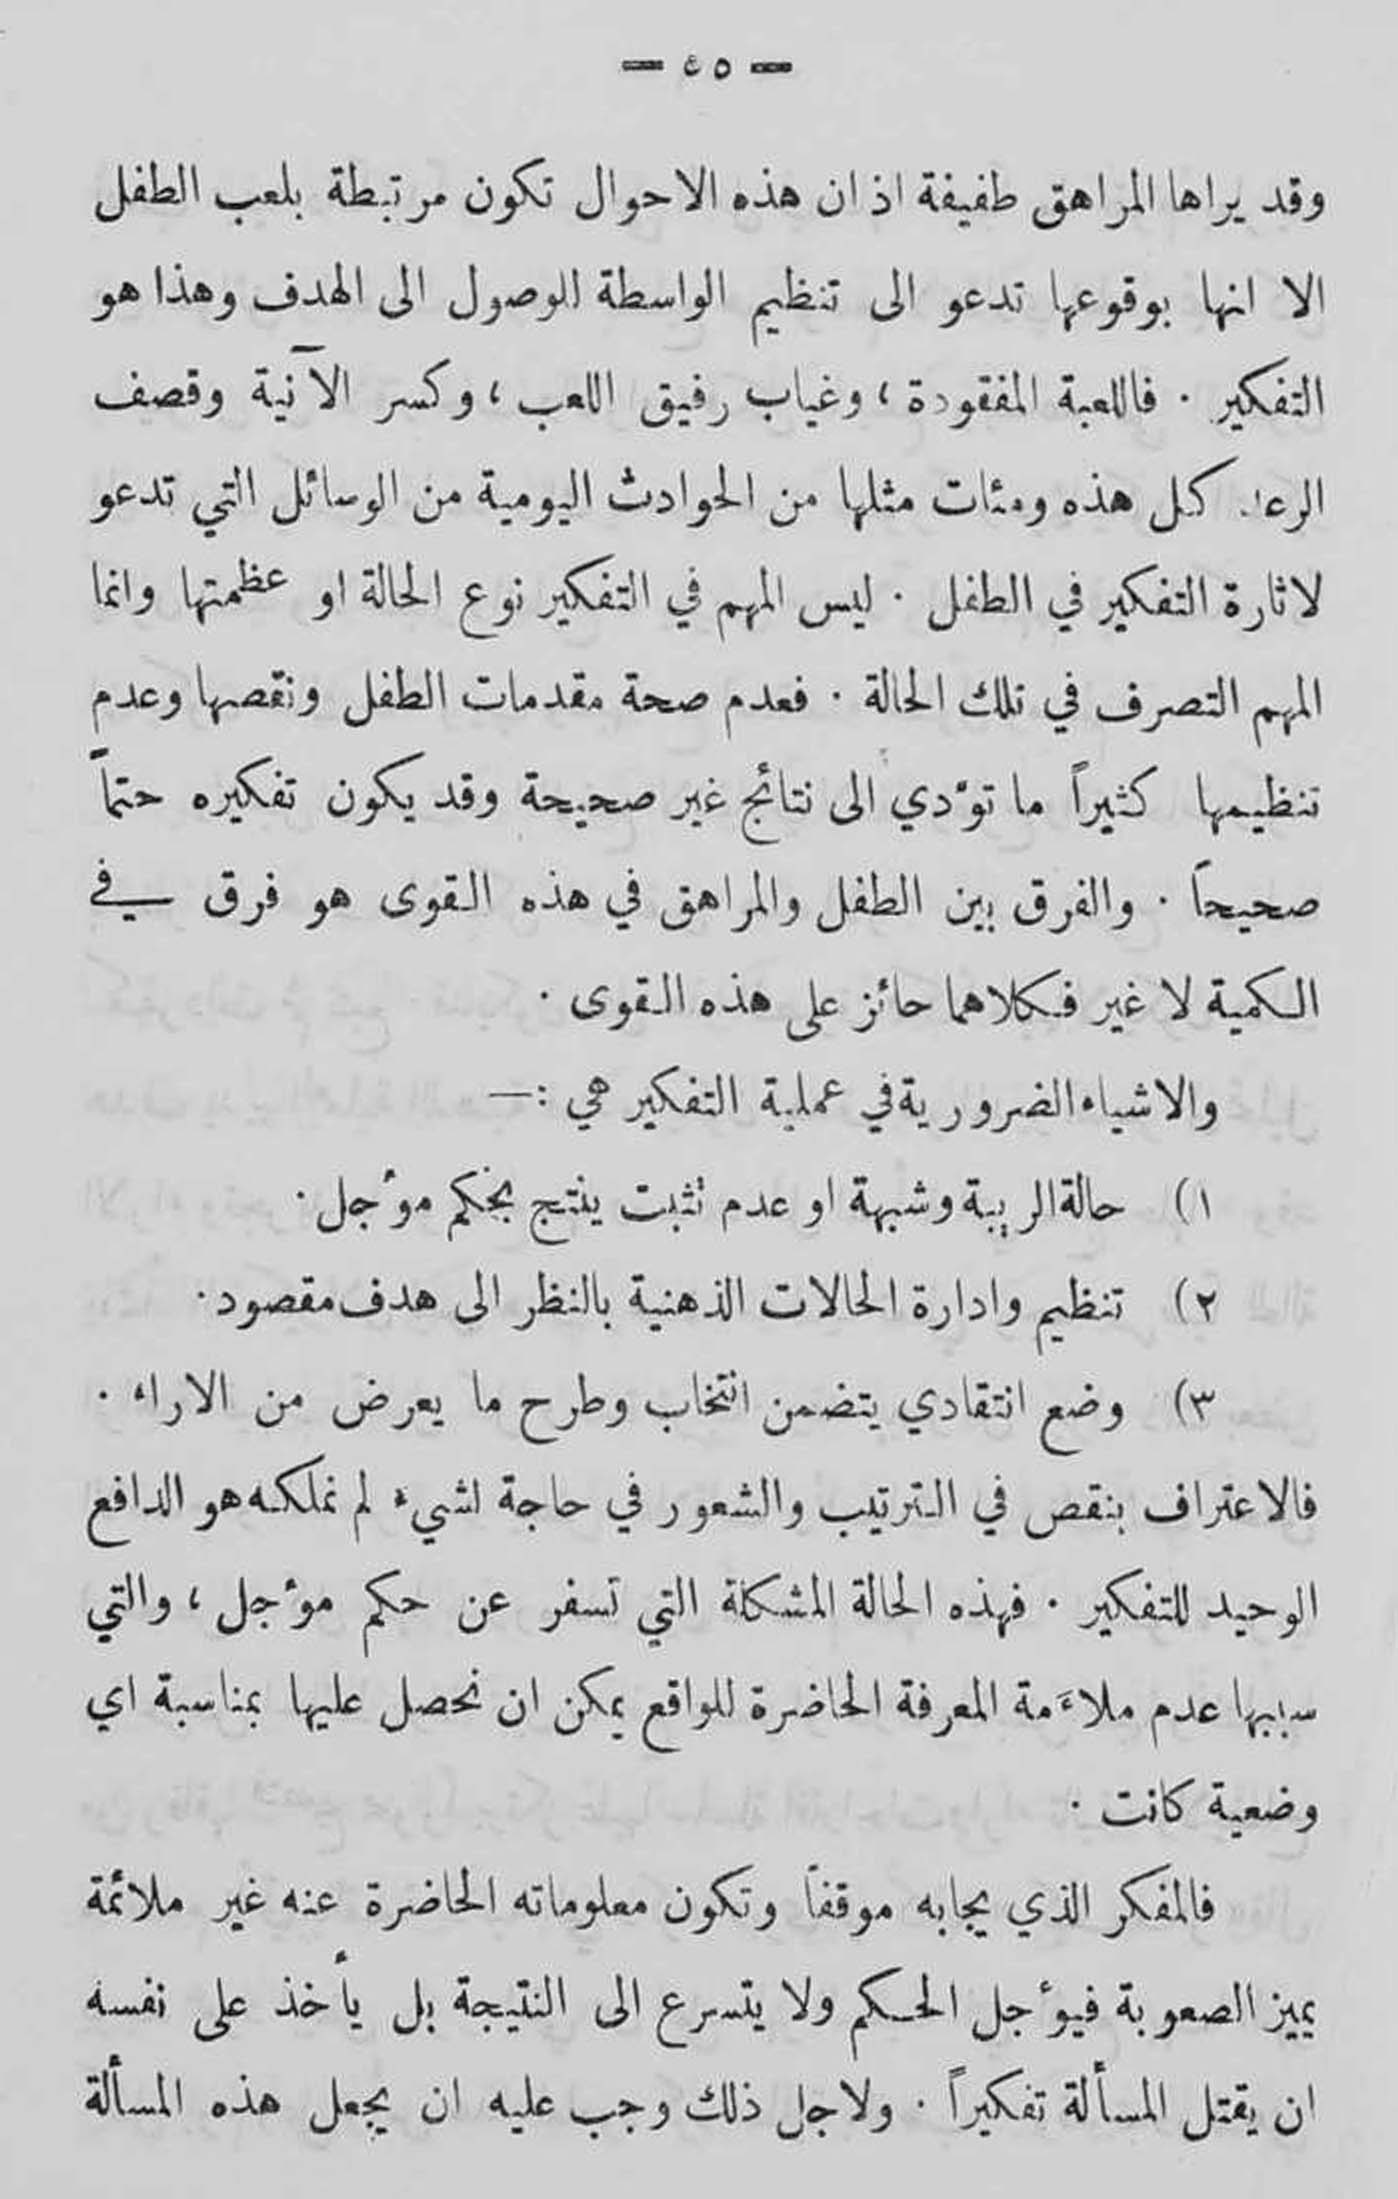 — ٤٥ —
وقد يراها المراهق طفيفة اذ ان هذه الاحوال تكون مرتبطة بلعب الطفل
الا انها بوقوعها تدعو الى تنظيم الواسطة للوصول الى الهدف وهذا هو
التفكير . فاللعبة المفقودة ، وغياب رفيق اللعب ، وكسر الآنية وقصف
كل هذه ومئات مثلها من الحوادث اليومية من الوسائل التي تدعو
لاثارة التفكير في الطفل . ليس المهم في التفكير نوع الحالة او عظمتها وانما
المهم التصرف في تلك الحالة . فعدم صحة مقدمات الطفل ونقصها وعدم
تنظيمها كثيراً ما تؤدي الى نتائج غير صحيحة وقد يكون تفكيره حتماً
صحيحاً . والفرق بين الطفل والمراهق في هذه القوى هو فرق في
الكمية لا غير فكلاهما حائز على هذه القوى .
والاشياء الضرورية في عملية التفكير هي :—
١) حالة الريبة وشبهة او عدم تثبت ينتج بحكم مؤجل .
٢) تنظيم وادارة الحالات الذهنية بالنظر الى هدف مقصود .
٣) وضع انتقادي يتضمن انتخاب وطرح ما يعرض من الاراء .
فالاعتراف بنقص في الترتيب والشعور في حاجة لشيء لم نملكه هو الدافع
الوحيد للتفكير . فهذه الحالة المشكلة التي تسفر عن حكم مؤجل ، والتي
سببها عدم ملاءَمة المعرفة الحاضرة للواقع يمكن ان نحصل عليها بمناسبة اي
وضعية كانت .
فالمفكر الذي يجابه موقفاً وتكون معلوماته الحاضرة عنه غير ملائمة
يميز الصعوبة فيؤجل الحكم ولا يتسرع الى النتيجة بل يأخذ على نفسه
ان يقتل المسألة تفكيراً . ولاجل ذلك وجب عليه ان يجعل هذه المسألة